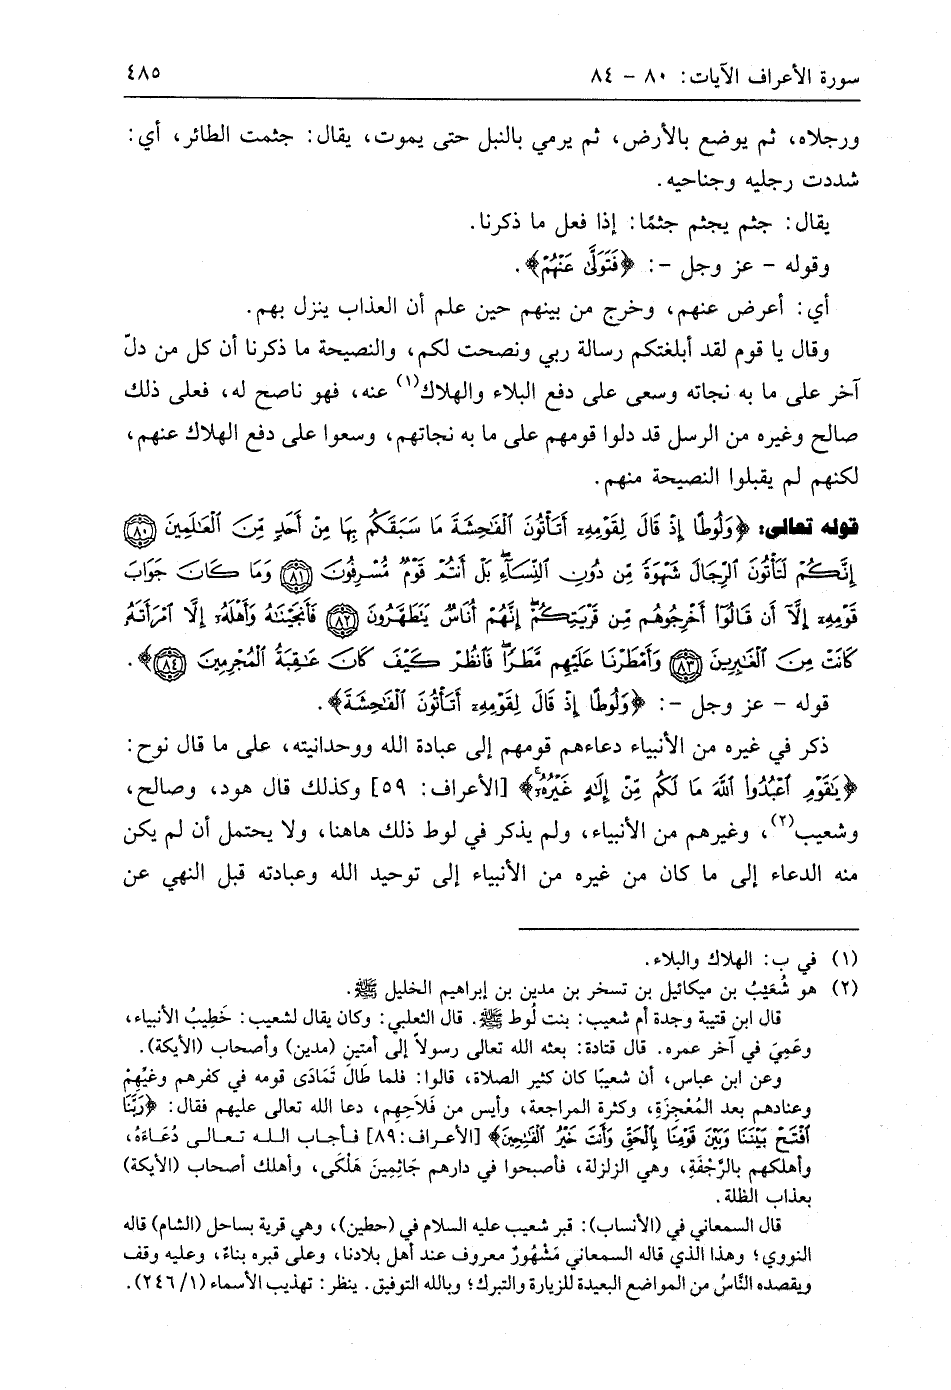 سورة الأعراف الآيات: ٨٠ - ٨٤
٤٨٥
ورجلاه، ثم يوضع بالأرض، ثم يرمي بالنبل حتى يموت، يقال: جثمت الطائر، أي:
شددت رجليه وجناحيه.
يقال: جثم يجثم جثمًا: إذا فعل ما ذكرنا.
وقوله - عز وجل -: ﴿فَتَوَلَّىٰ عَنْهُمْ﴾.
أي: أعرض عنهم، وخرج من بينهم حين علم أن العذاب ينزل بهم.
وقال يا قوم لقد أبلغتكم رسالة ربي ونصحت لكم، والنصيحة ما ذكرنا أن كل من دلّ
آخر على ما به نجاته وسعى على دفع البلاء والهلاك(١) عنه، فهو ناصح له، فعلى ذلك
صالح وغيره من الرسل قد دلوا قومهم على ما به نجاتهم، وسعوا على دفع الهلاك عنهم،
لكنهم لم يقبلوا النصيحة منهم.
قوله تعالى: ﴿وَلُوطًا إِذْ قَالَ لِقَوْمِهِۦٓ أَتَأْتُونَ ٱلْفَـٰحِشَةَ مَا سَبَقَكُم بِهَا مِنْ أَحَدٍ مِّنَ ٱلْعَـٰلَمِينَ ٨٠
إِنَّكُمْ لَتَأْتُونَ ٱلرِّجَالَ شَهْوَةً مِّن دُونِ ٱلنِّسَآءِ بَلْ أَنتُمْ قَوْمٌ مُّسْرِفُونَ ٨١ وَمَا كَانَ جَوَابَ
قَوْمِهِۦٓ إِلَّآ أَن قَالُوٓا۟ أَخْرِجُوهُم مِّن قَرْيَتِكُمْ إِنَّهُمْ أُنَاسٌ يَتَطَهَّرُونَ ٨٢ فَأَنجَيْنَـٰهُ وَأَهْلَهُۥٓ إِلَّا ٱمْرَأَتَهُۥ
كَانَتْ مِنَ ٱلْغَـٰبِرِينَ ٨٣ وَأَمْطَرْنَا عَلَيْهِم مَّطَرًا فَٱنظُرْ كَيْفَ كَانَ عَـٰقِبَةُ ٱلْمُجْرِمِينَ ٨٤﴾.
قوله - عز وجل -: ﴿وَلُوطًا إِذْ قَالَ لِقَوْمِهِۦٓ أَتَأْتُونَ ٱلْفَـٰحِشَةَ﴾.
ذكر في غيره من الأنبياء دعاءهم قومهم إلى عبادة الله ووحدانيته، على ما قال نوح:
﴿يَـٰقَوْمِ ٱعْبُدُوا۟ ٱللَّهَ مَا لَكُم مِّنْ إِلَـٰهٍ غَيْرُهُۥٓ﴾ [الأعراف: ٥٩] وكذلك قال هود، وصالح،
وشعيب(٢)، وغيرهم من الأنبياء، ولم يذكر في لوط ذلك هاهنا، ولا يحتمل أن لم يكن
منه الدعاء إلى ما كان من غيره من الأنبياء إلى توحيد الله وعبادته قبل النهي عن
(١) في ب: الهلاك والبلاء.
(٢) هو شُعَيْبُ بن ميكائيل بن تسخر بن مدين بن إبراهيم الخليل ﷺ.
قال ابن قتيبة وجدة أم شعيب: بنت لُوط ﷺ. قال الثعلبي: وكان يقال لشعيب: خَطِيبُ الأنبياء،
وعَمِيَ في آخر عمره. قال قتادة: بعثه الله تعالى رسولاً إلى أمتين (مدين) وأصحاب (الأيكة).
وعن ابن عباس، أن شعيبًا كان كثير الصلاة، قالوا: فلما طَالَ تَمَادَى قومه في كفرهم وغيِّهِمْ
وعنادهم بعد المُعْجِزَةِ، وكثرة المراجعة، وأيس من فَلاَحِهِم، دعا الله تعالى عليهم فقال: ﴿رَبَّنَا
ٱفْتَحْ بَيْنَنَا وَبَيْنَ قَوْمِنَا بِٱلْحَقِّ وَأَنتَ خَيْرُ ٱلْفَـٰتِحِينَ﴾ [الأعراف: ٨٩] فأجاب الله تعالى دُعَاءَهُ،
وأهلكهم بالرَّجْفَةِ، وهي الزلزلة، فأصبحوا في دارهم جَاثِمِينَ هَلْكَى، وأهلك أصحاب (الأيكة)
بعذاب الظلة.
قال السمعاني في (الأنساب): قبر شعيب عليه السلام في (حطين)، وهي قرية بساحل (الشام) قاله
النووي؛ وهذا الذي قاله السمعاني مَشْهُورٌ معروف عند أهل بلادنا، وعلى قبره بناءٌ، وعليه وقف
ويقصده النَّاسُ من المواضع البعيدة للزيارة والتبرك؛ وبالله التوفيق. ينظر: تهذيب الأسماء (١/ ٢٤٦).